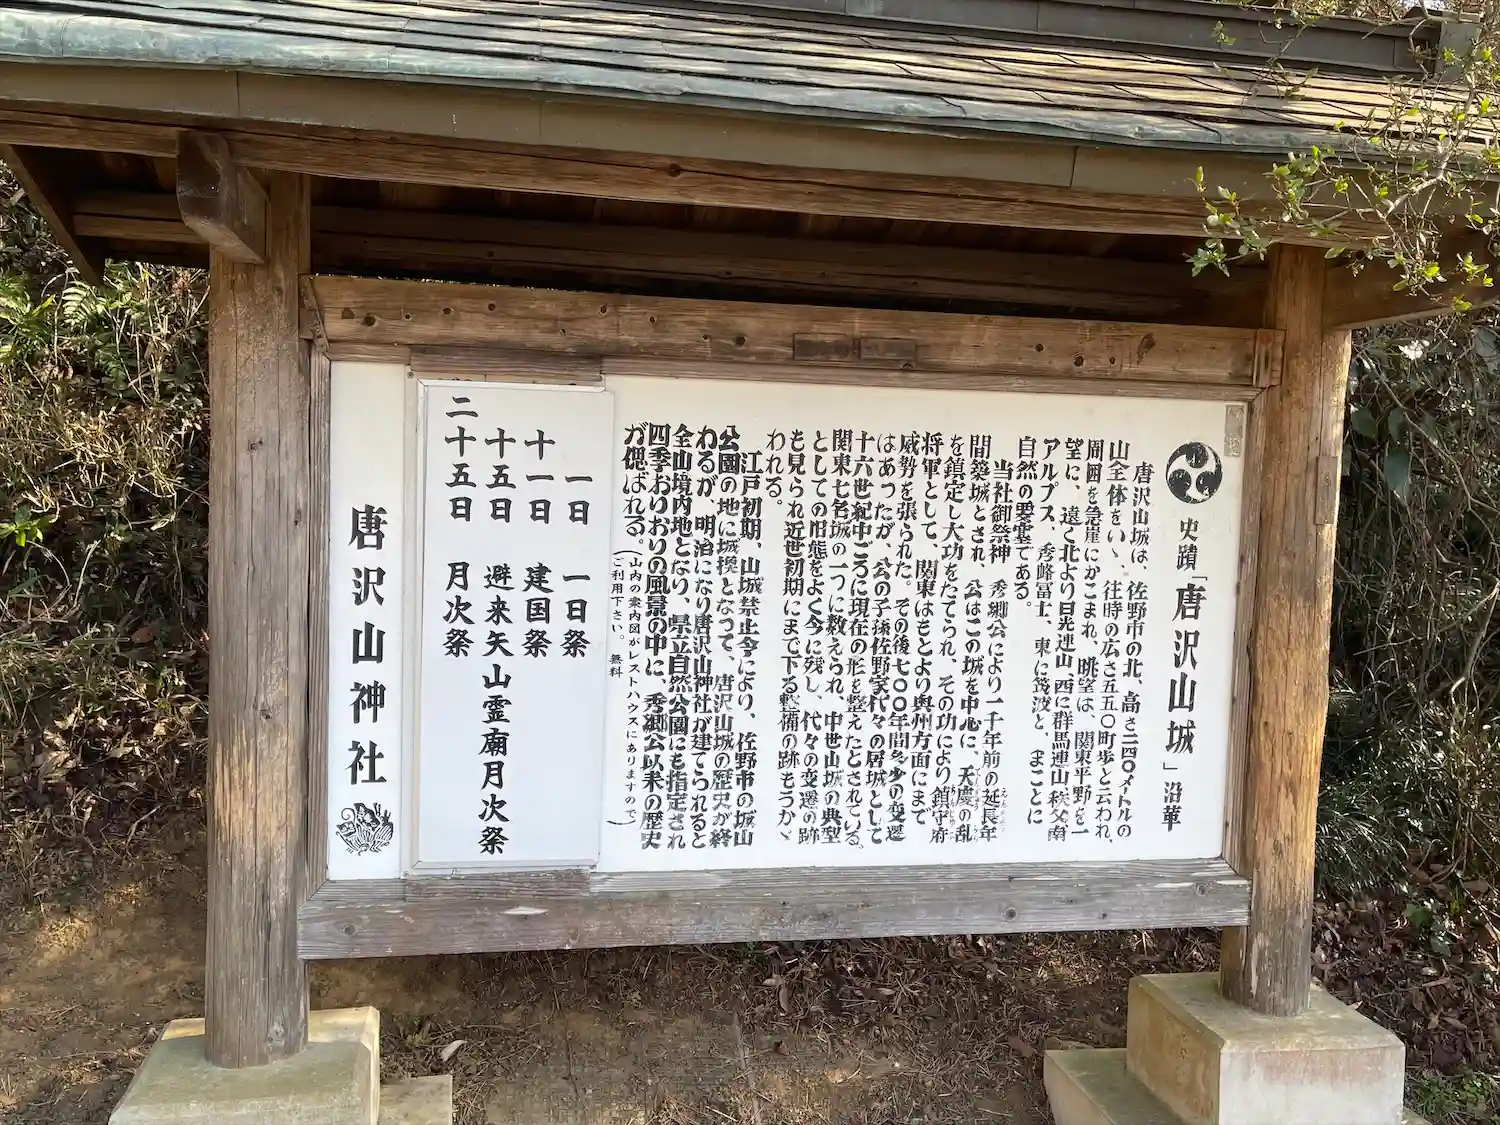 史蹟「唐沢山城」沿革
唐沢山城は、佐野市の北、高さ二四〇メートルの
山全体をいゝ、往時の広さ五五〇町歩と云われ、
周囲を急崖にかこまれ、眺望は、関東平野を一
望に、遠く北より日光連山、西に群馬連山秩父南
アルプス、秀峰富士、東に筑波と、まことに
自然の要塞である。
当社御祭神 秀郷公により一千年前の延長年
間築城とされ、公はこの城を中心に、天慶の乱
を鎮定し大功をたてられ、その功により鎮守府
将軍として、関東はもとより奥州方面にまで
威勢を張られた。その後七〇〇年間多少の変遷
はあつたが、公の子孫佐野家代々の居城として
十六世紀中ごろに現在の形を整えたとされている。
関東七名城の一つに数えられ、中世山城の典型
としての旧態をよく今に残し、代々の変遷の跡
も見られ近世初期にまで下る整備の跡もうかゞ
われる。
江戸初期、山城禁止令により、佐野市の城山
公園の地に城換となつて、唐沢山城の歴史が終
わるが、明治になり唐沢山神社が建てられると
全山境内地となり、県立自然公園にも指定され
四季おりおりの風景の中に、秀郷公以来の歴史
が偲ばれる。
(山内の案内図がレストハウスにありますので
ご利用下さい。 無料)
一日 一日祭
十一日 建国祭
十五日 避来矢山霊廟月次祭
二十五日 月次祭
唐沢山神社